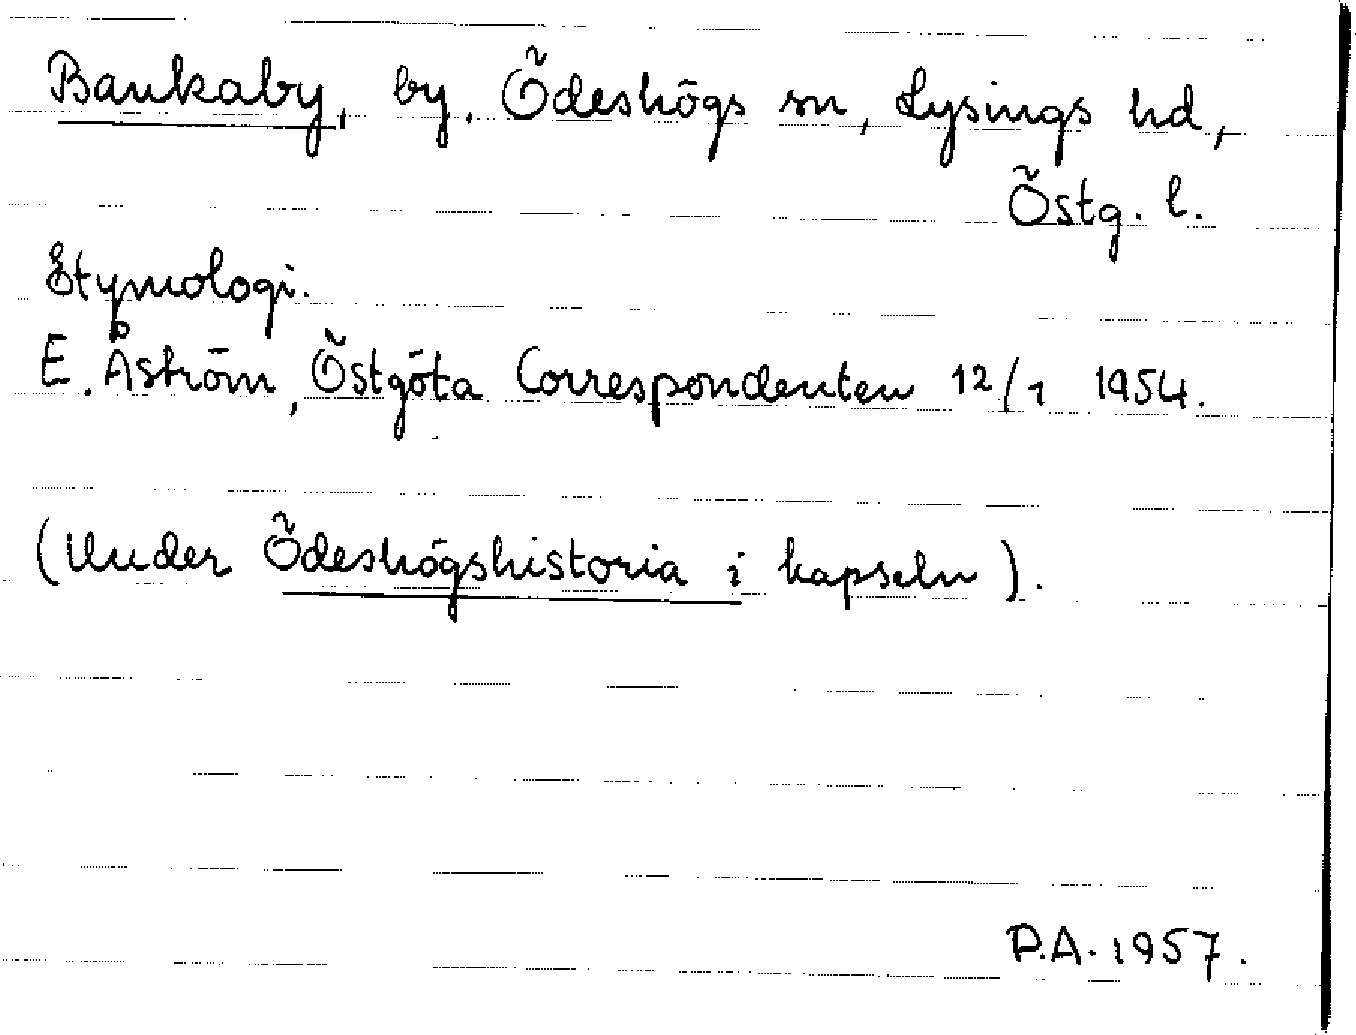 Bankaby, by. Ödeshögs sn, Lysings hd,
Östg. l.
Etymologi.
E. Åström, Östgöta Correspondenten 12/1 1954.
(Under Ödeshögshistoria i kapseln).
P.A. 1957.